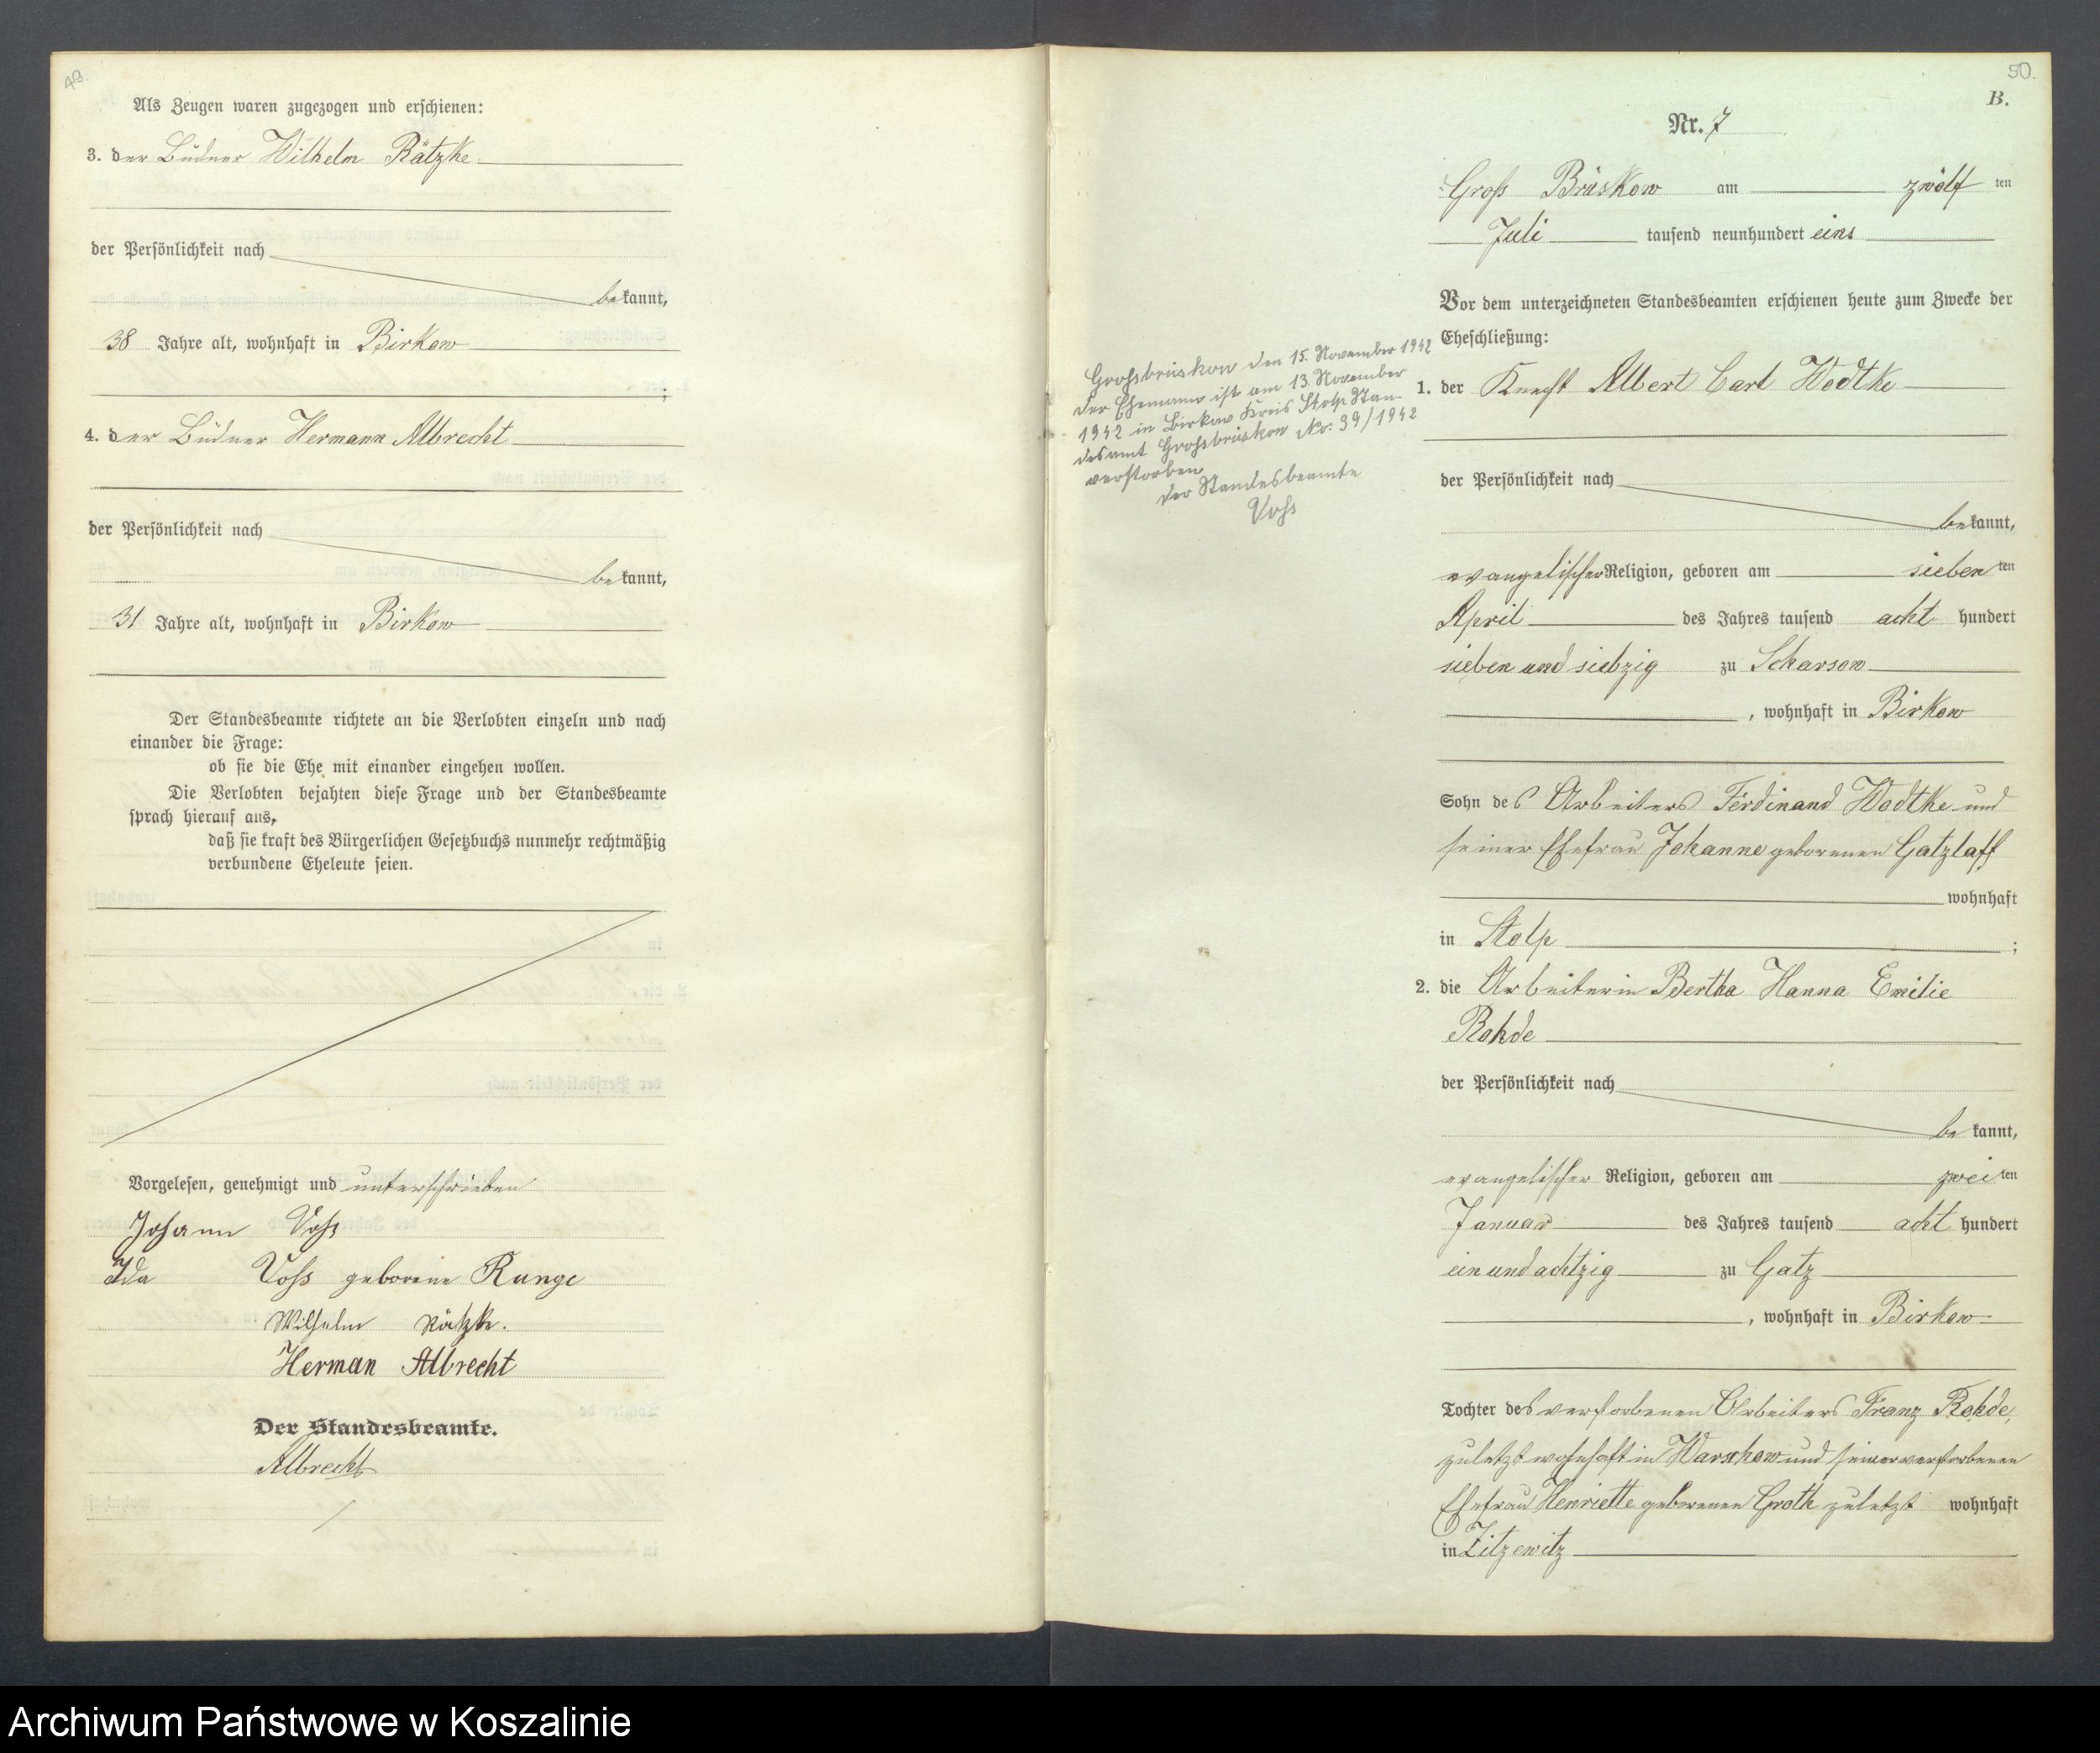 49.
Als Zeugen waren zugezogen und erschienen:
3. der Büdner Wilhelm Rätzke
der Persönlichkeit nach
bekannt,
38 Jahre alt, wohnhaft in Birkow
;
4. der Büdner Hermann Albrecht
der Persönlichkeit nach
bekannt,
31 Jahre alt, wohnhaft in Birkow
Der Standesbeamte richtete an die Verlobten einzeln und nach
einander die Frage:
ob sie die Ehe mit einander eingehen wollen.
Die Verlobten bejahten diese Frage und der Standesbeamte
sprach hierauf aus,
daß sie kraft des Bürgerlichen Gesetzbuchs nunmehr rechtmäßig
verbundene Eheleute seien.
Vorgelesen, genehmigt und unterschrieben
Johann Voß
Ida Voß geborene Runge
Wilhelm Rätzke.
Herman Albrecht
Der Standesbeamte.
Albrecht
50.
B.
Nr. 7
Groß Brüskow am zwölften
Juli tausend neunhundert eins
Vor dem unterzeichneten Standesbeamten erschienen heute zum Zwecke der
Eheschließung:
1. der Knecht Albert Carl Wodtke
der Persönlichkeit nach
bekannt,
evangelischer Religion, geboren am siebenten
April des Jahres tausend acht hundert
sieben und siebzig zu Scharsow
, wohnhaft in Birkow
Sohn des Arbeiters Ferdinand Wodtke und
seiner Ehefrau Johanne geborenen Gatzlaff
wohnhaft
in Stolp ;
2. die Arbeiterin Bertha Hanna Emilie
Rohde
der Persönlichkeit nach
bekannt,
evangelischer Religion, geboren am zweiten
Januar des Jahres tausend acht hundert
ein und achtzig zu Gatz
, wohnhaft in Birkow
Tochter des verstorbenen Arbeiters Franz Rohde,
zuletzt wohnhaft in Warschow und seiner verstorbenen
Ehefrau Henriette geborenen Groth zuletzt wohnhaft
in Zitzewitz
Großbrüskow den 15. November 1942
Der Ehemann ist am 13. November
1942 in Birkow Kreis Stolp Stan-
desamt Großbrüskow No: 39/1942
verstorben
Der Standesbeamte
Voß
Archiwum Państwowe w Koszalinie